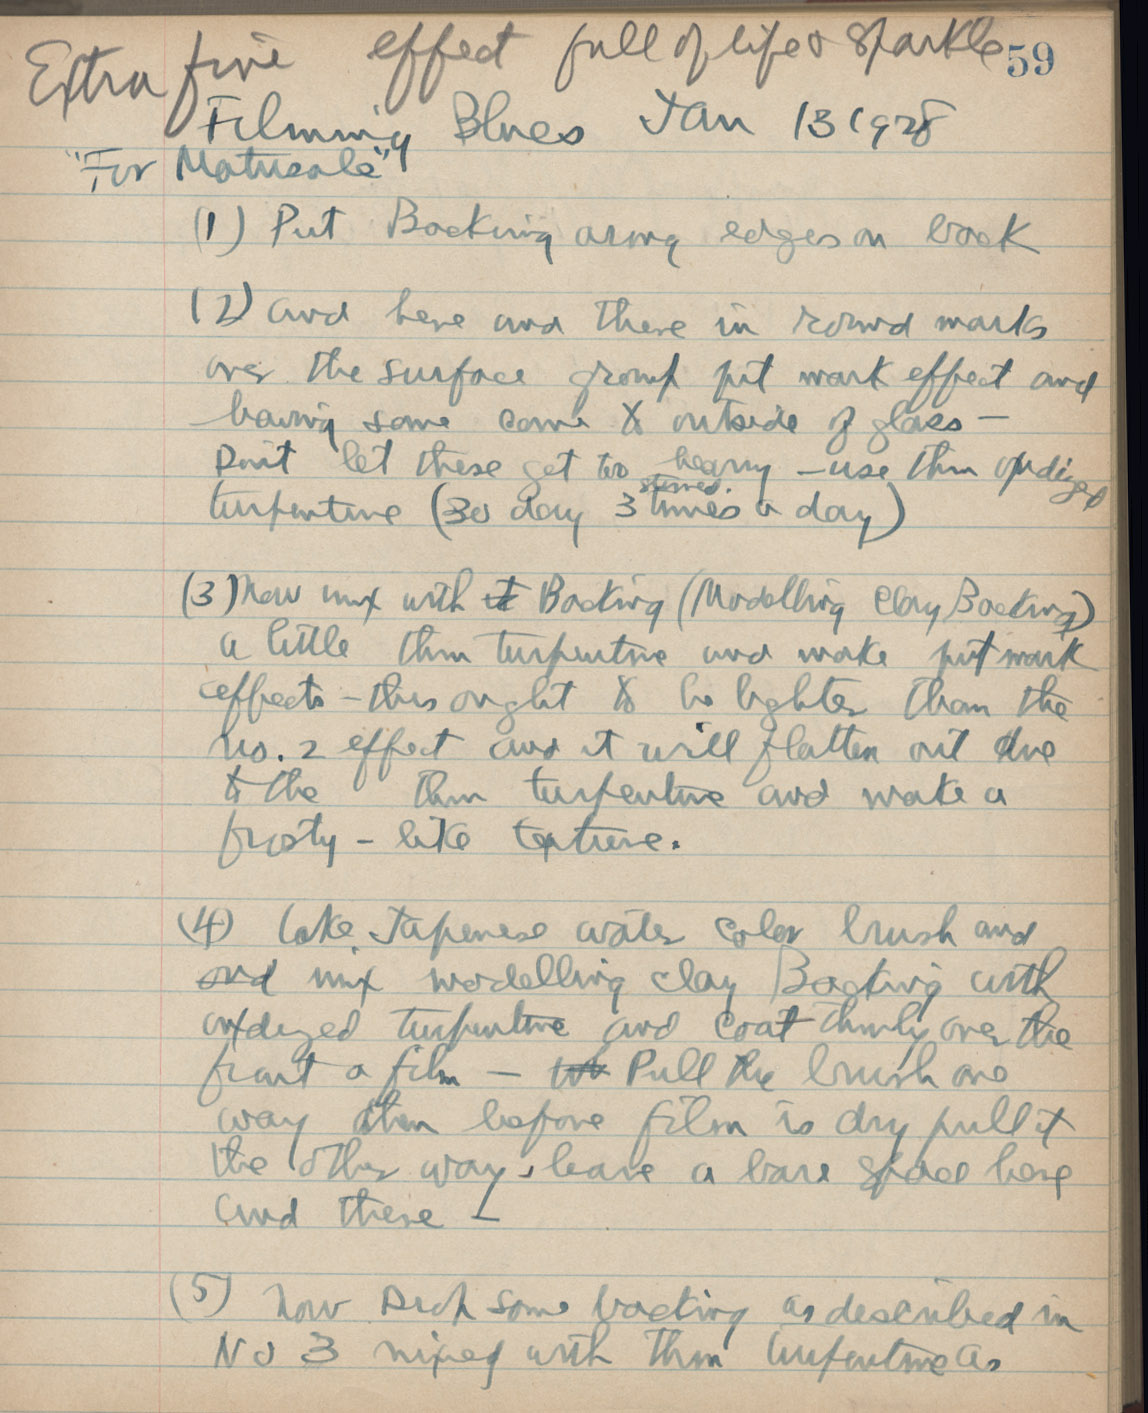 Extra fine effect full of life & sparkle 59
Filming Blues Jan 13 1928
"For Matusale"
(1) Put Backing along edges on back
(2) and here and there in round marks
over the surface group pit mark effect and
having some come to outside of glass —
Dont let these get too heavy — use thin oxdized
stirred.
turpentine (30 day 3 times a day)
(3) Now mix with it Backing (Modelling Clay Backing)
a little thin turpentine and make pit mark
effects - this ought to be lighter than the
No. 2 effect and it will flatten out due
to the thin turpentine and make a
frosty - like texture.
(4) take Japenese water color brush and
and mix modelling clay Backing with
oxdized turpentine and coat thinly over the
front a film — Pull the brush one
way then before film is dry pull it
the other way, leave a bare space here
and there —
(5) now Dech some backing as described in
No 3 mixed with thin turpentine as